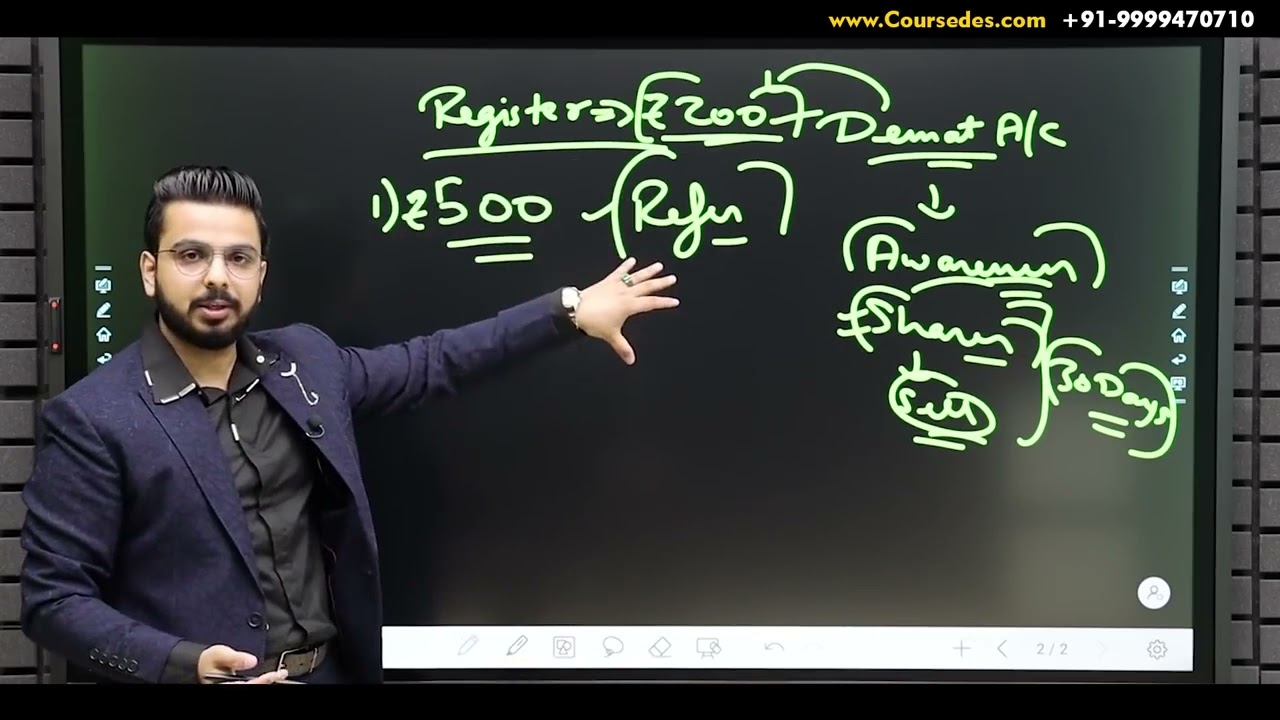 www.Coursedes.com +91-9999470710
Register⇒ [₹200] + Demat A/c
1) ₹500 - (Refer)
(Awareness)
(Shares)
Sell
(30 Days)
2/2